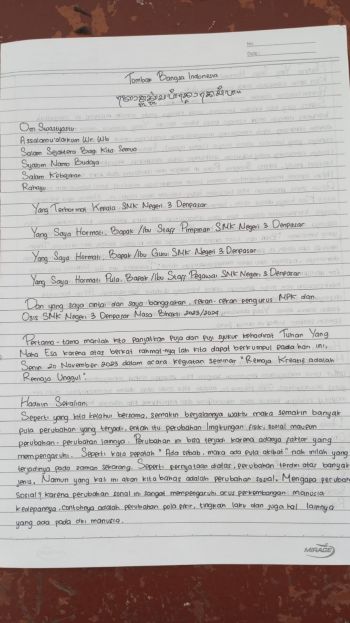 No.
Date
Tombak Bangsa Indonesia
Om Swastyastu
Assalamu'alaikum Wr. Wb
Salam Sejahtera Bagi Kita Semua
Syalom Namo Budaya
Salam Kebajikan
Rahayu
Yang Terhormat Kepala SMK Negeri 3 Denpasar
Yang Saya Hormati, Bapak / Ibu Staff Pimpinan SMK Negeri 3 Denpasar
Yang Saya Hormati, Bapak / Ibu Guru SMK Negeri 3 Denpasar
Yang Saya Hormati Pula, Bapak / Ibu Staff Pegawai SMK Negeri 3 Denpasar
Dan yang saya cintai dan saya banggakan, rekan-rekan pengurus MPK dan
Osis SMK Negeri 3 Denpasar Masa Bhakti 2023/2024
Pertama-tama marilah kita panjatkan Puja dan Puji syukur kehadirat Tuhan Yang
Maha Esa karena atas berkat rahmat-nya lah kita dapat berkumpul pada hari ini,
Senin 20 November 2023 dalam acara kegiatan seminar "Remaja Kreatif adalah
Remaja Unggul".
Hadirin Sekalian
Seperti yang kita ketahui bersama, semakin berjalannya waktu maka semakin banyak
pula perubahan yang terjadi, entah itu perubahan lingkungan fisik, sosial maupun
perubahan-perubahan lainnya. Perubahan ini bisa terjadi karena adanya faktor yang
mempengaruhi. Seperti kata pepatah "Ada sebab, maka ada pula akibat" nah inilah yang
terjadinya pada zaman sekarang. Seperti pernyataan diatas, perubahan terdiri atas banyak
jenis, Namun yang kali ini akan kita bahas adalah perubahan sosial. Mengapa perubahan
sosial? karena perubahan sosial ini sangat mempengaruhi arus perkembangan manusia
kedepannya. Contohnya adalah perubahan pola pikir, tingkah laku dan juga hal lainnya
yang ada pada diri manusia.
MIRAGE